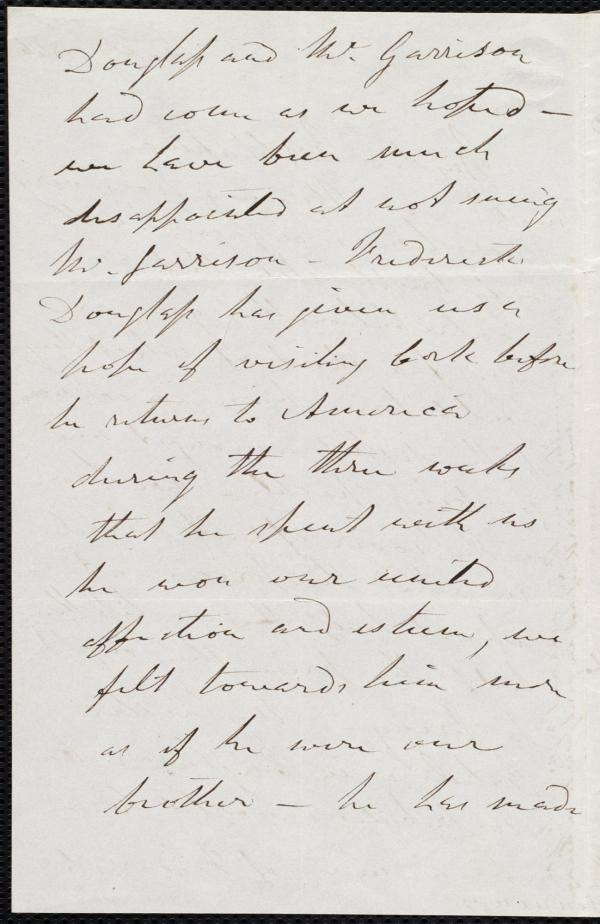 Douglass and Mr. Garrison
had come as we hoped —
we have been much
disappointed at not seeing
Mr. Garrison - Frederick
Douglass has given us a
hope of visiting Cork before
he returns to America
during the three weeks
that he spent with us
he won our united
affection and esteem, we
felt towards him more
as if he were our
brother — he has made